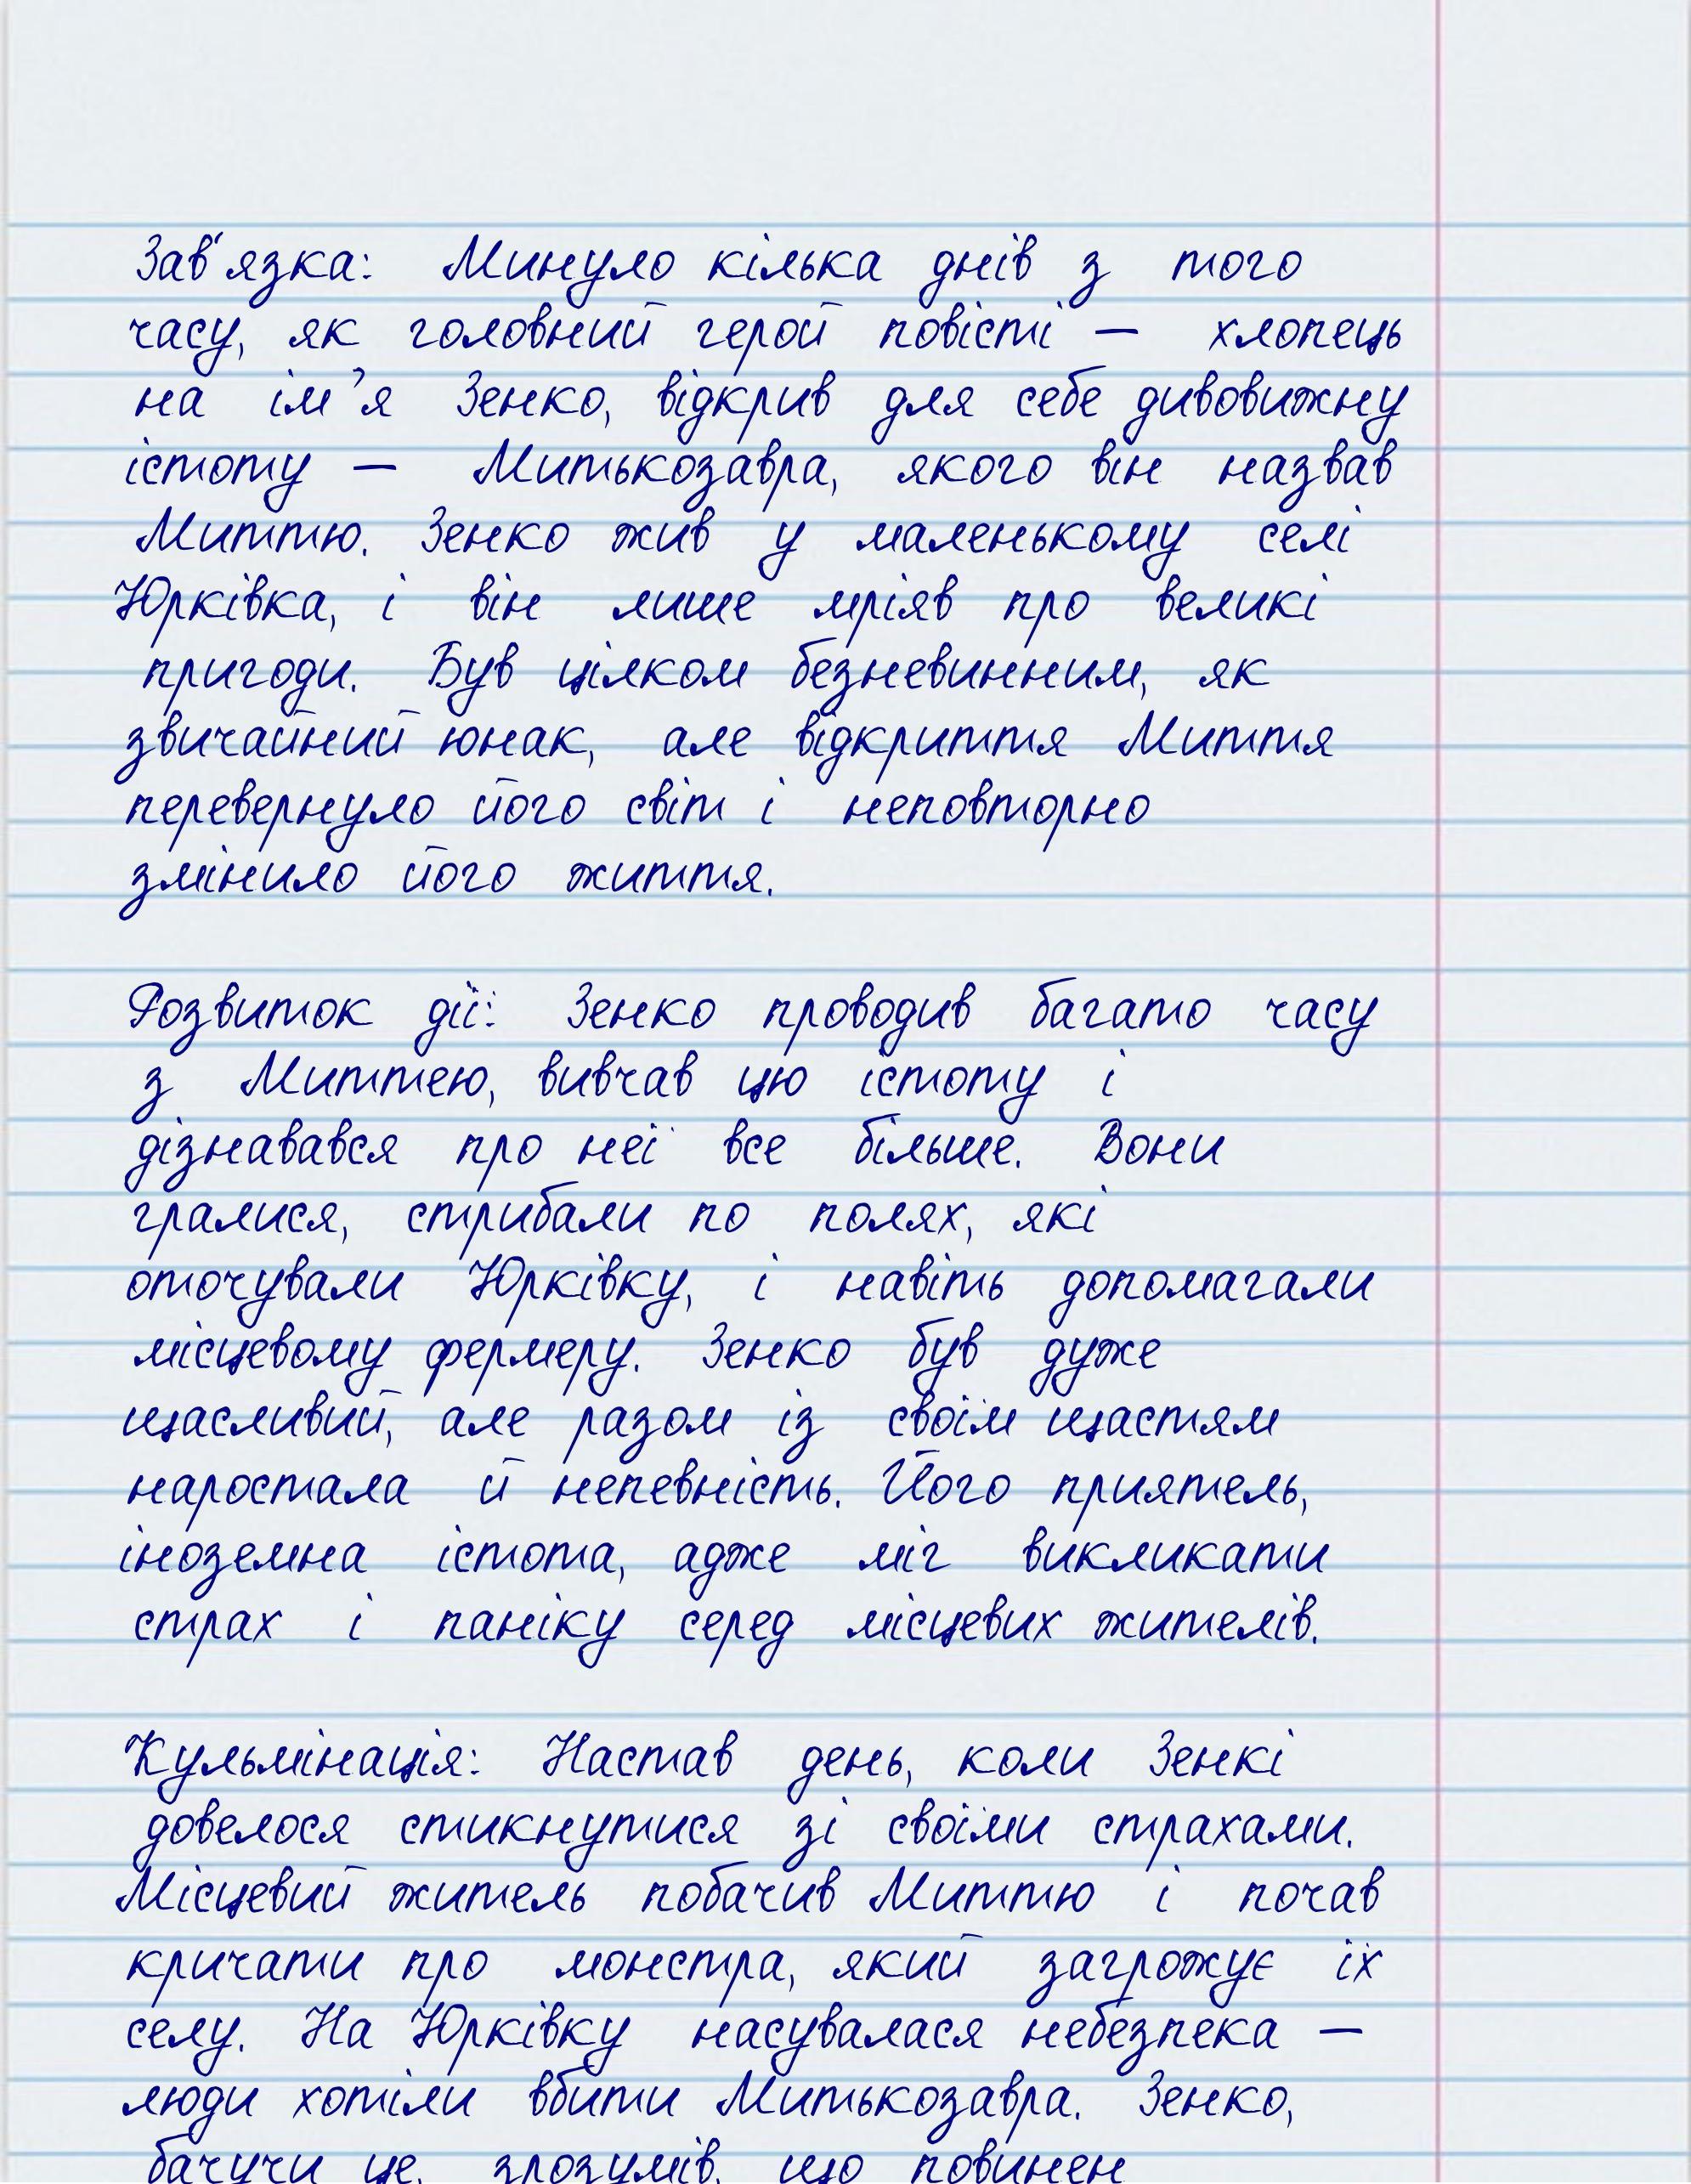 Зав'язка: Минуло кілька днів з того
часу, як головний герой повісті — хлопець
на ім'я Зенко, відкрив для себе дивовижну
істоту — Митькозавра, якого він назвав
Миттю. Зенко жив у маленькому селі
Юрківка, і він лише мріяв про великі
пригоди. Був цілком безневинним, як
звичайний юнак, але відкриття Миття
перевернуло його світ і неповторно
змінило його життя.
Розвиток дії: Зенко проводив багато часу
з Миттею, вивчав цю істоту і
дізнавався про неї все більше. Вони
гралися, стрибали по полях, які
оточували Юрківку, і навіть допомагали
місцевому фермеру. Зенко був дуже
щасливий, але разом із своїм щастям
наростала й непевність. Його приятель,
іноземна істота, адже міг викликати
страх і паніку серед місцевих жителів.
Кульмінація: Настав день, коли Зенкі
довелося стикнутися зі своїми страхами.
Місцевий житель побачив Миттю і почав
кричати про монстра, який загрожує їх
селу. На Юрківку насувалася небезпека —
люди хотіли вбити Митькозавра. Зенко,
бачучи це, зрозумів, що повинен